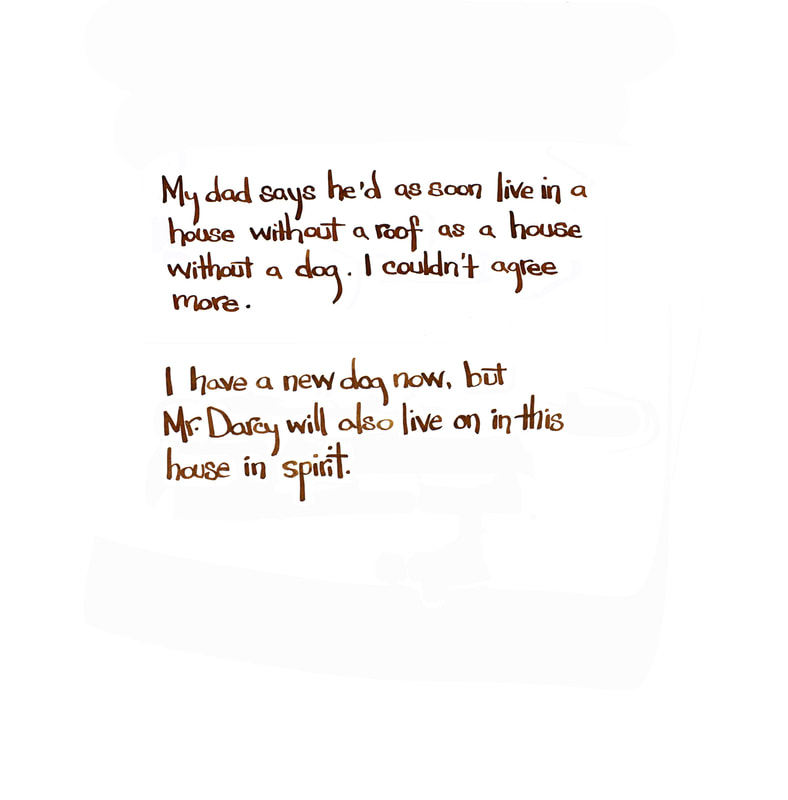 My dad says he'd as soon live in a
house without a roof as a house
without a dog. I couldn't agree
more.
I have a new dog now, but
Mr. Darcy will also live on in this
house in spirit.